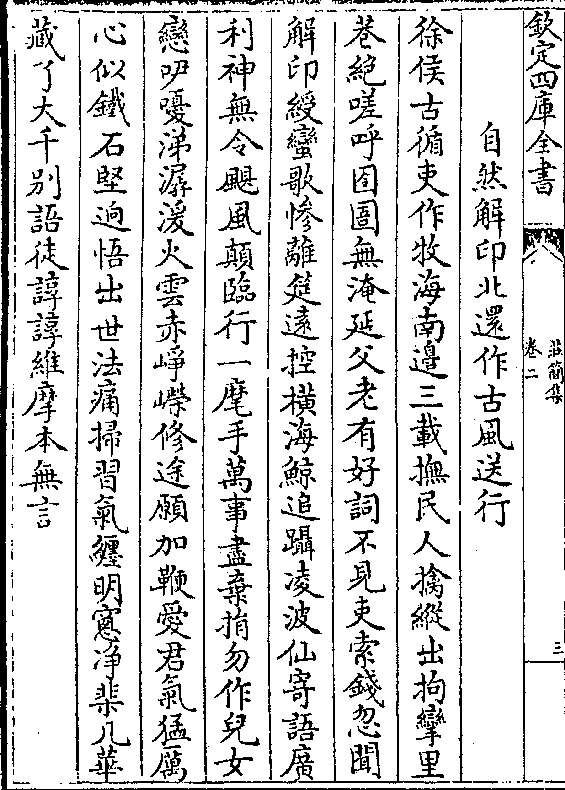 欽定四庫全書
莊簡集
卷二
三
自然解印北還作古風送行
徐侯古循吏作牧海南邊三載撫民人擒縱出拘攣里
巷絶嗟呼囹圄無淹延父老有好詞不見吏索錢忽聞
解印綬蠻歌慘離筵遠控橫海鯨追躡凌波仙寄語廣
利神無令颶風顛臨行一麾手萬事盡棄捐勿作兒女
戀呼嚘涕潺湲火雲赤崢嶸修途願加鞭愛君氣猛厲
心似鐵石堅逈悟出世法痛掃習氣纒明窻净棐几華
藏了大千别語徒諄諄維摩本無言